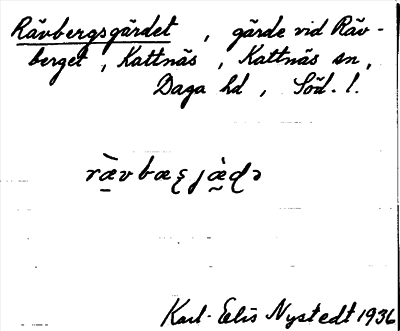 Rävbergsgärdet , gärde vid Räv-
berget , Kattnäs , Kattnäs sn,
Daga hd , Söd. l.
Karl-Elis Nystedt 1936